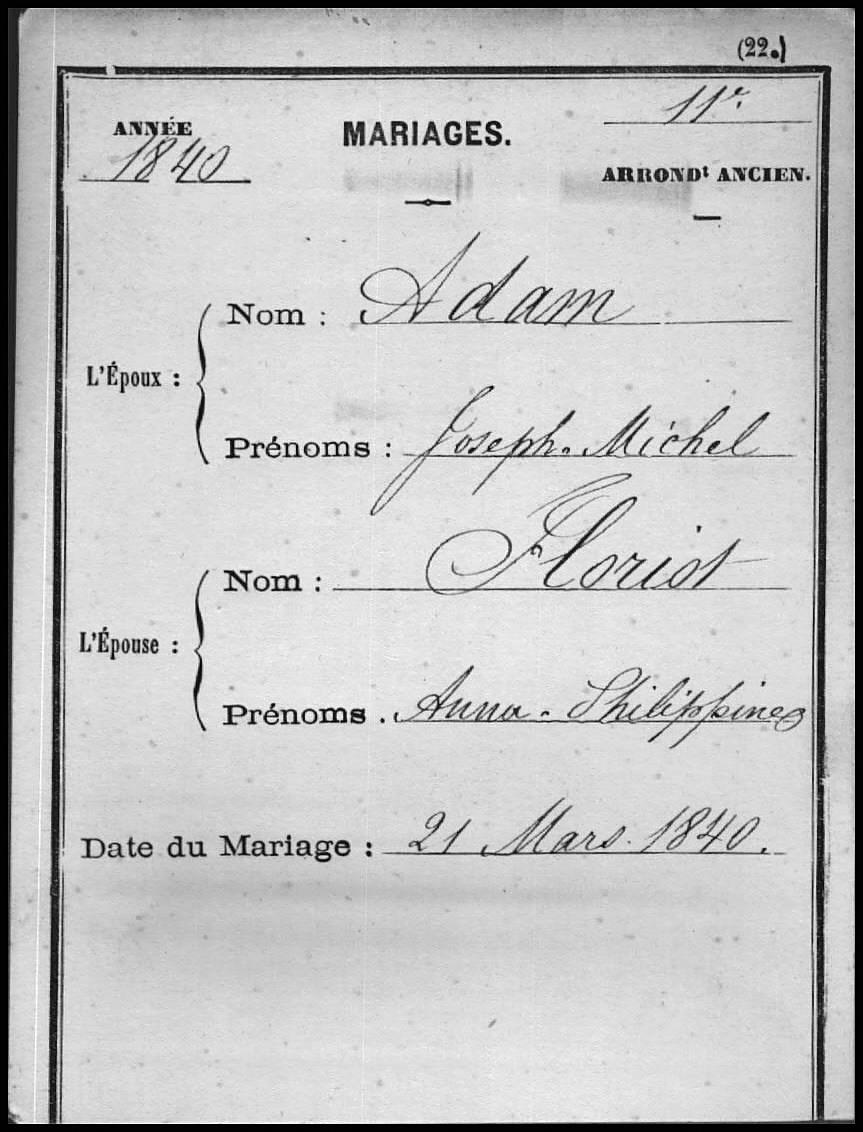 (22.)
ANNÉE
1840
MARIAGES.
11e
ARRONDt ANCIEN.
L'Époux :
Nom : Adam
Prénoms : Joseph-Michel
L'Épouse :
Nom : Floriot
Prénoms . Anna-Philippine
Date du Mariage : 21 Mars 1840.